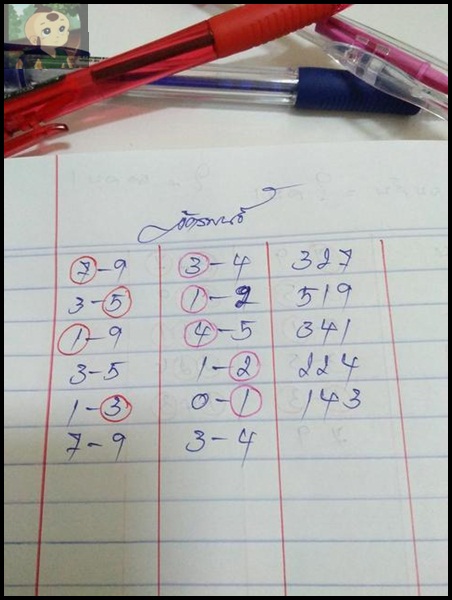 จักรพรรดิ์
7-9 3-4 327
3-5 1-2 519
1-9 4-5 341
3-5 1-2 224
1-3 0-1 143
7-9 3-4